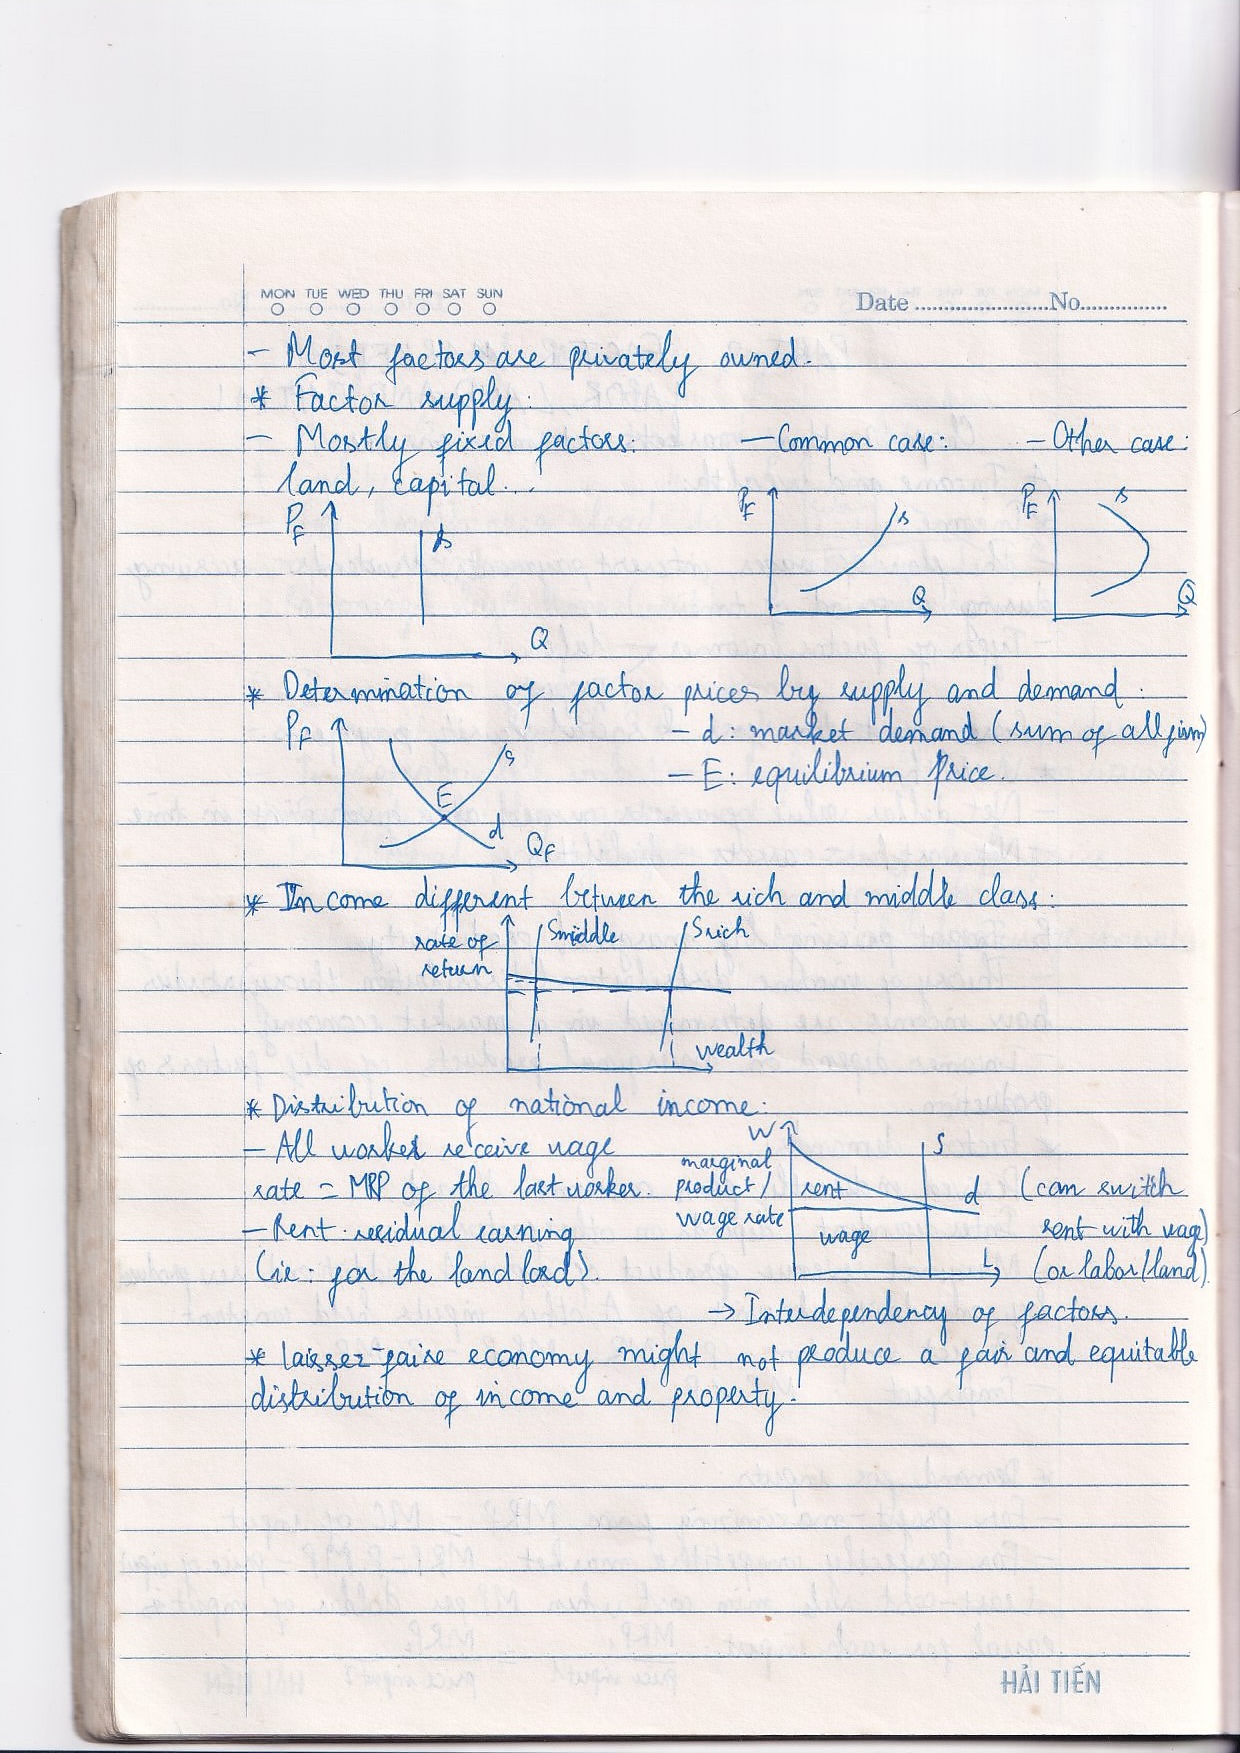 MON TUE WED THU FRI SAT SUN
Date ........................No................
– Most factors are privately owned.
* Factor supply:
– Mostly fixed factors: – Common case: – Other case:
land, capital...
PF s Q
PF s Q
PF s Q
* Determination of factor prices by supply and demand:
PF s E d QF
– d: market demand (sum of all firm)
– E: equilibrium Price.
* Income different between the rich and middle class:
rate of return Smiddle Srich wealth
* Distribution of national income:
– All worker receive wage
rate = MRP of the last worker.
– Rent: residual earning
(ie: for the land lord).
W S
marginal
product/ rent d (can switch
wage rate wage rent with wage)
L (or labor/land).
→ Interdependency of factors.
* laissez-faire economy might not produce a fair and equitable
distribution of income and property.
HẢI TIẾN